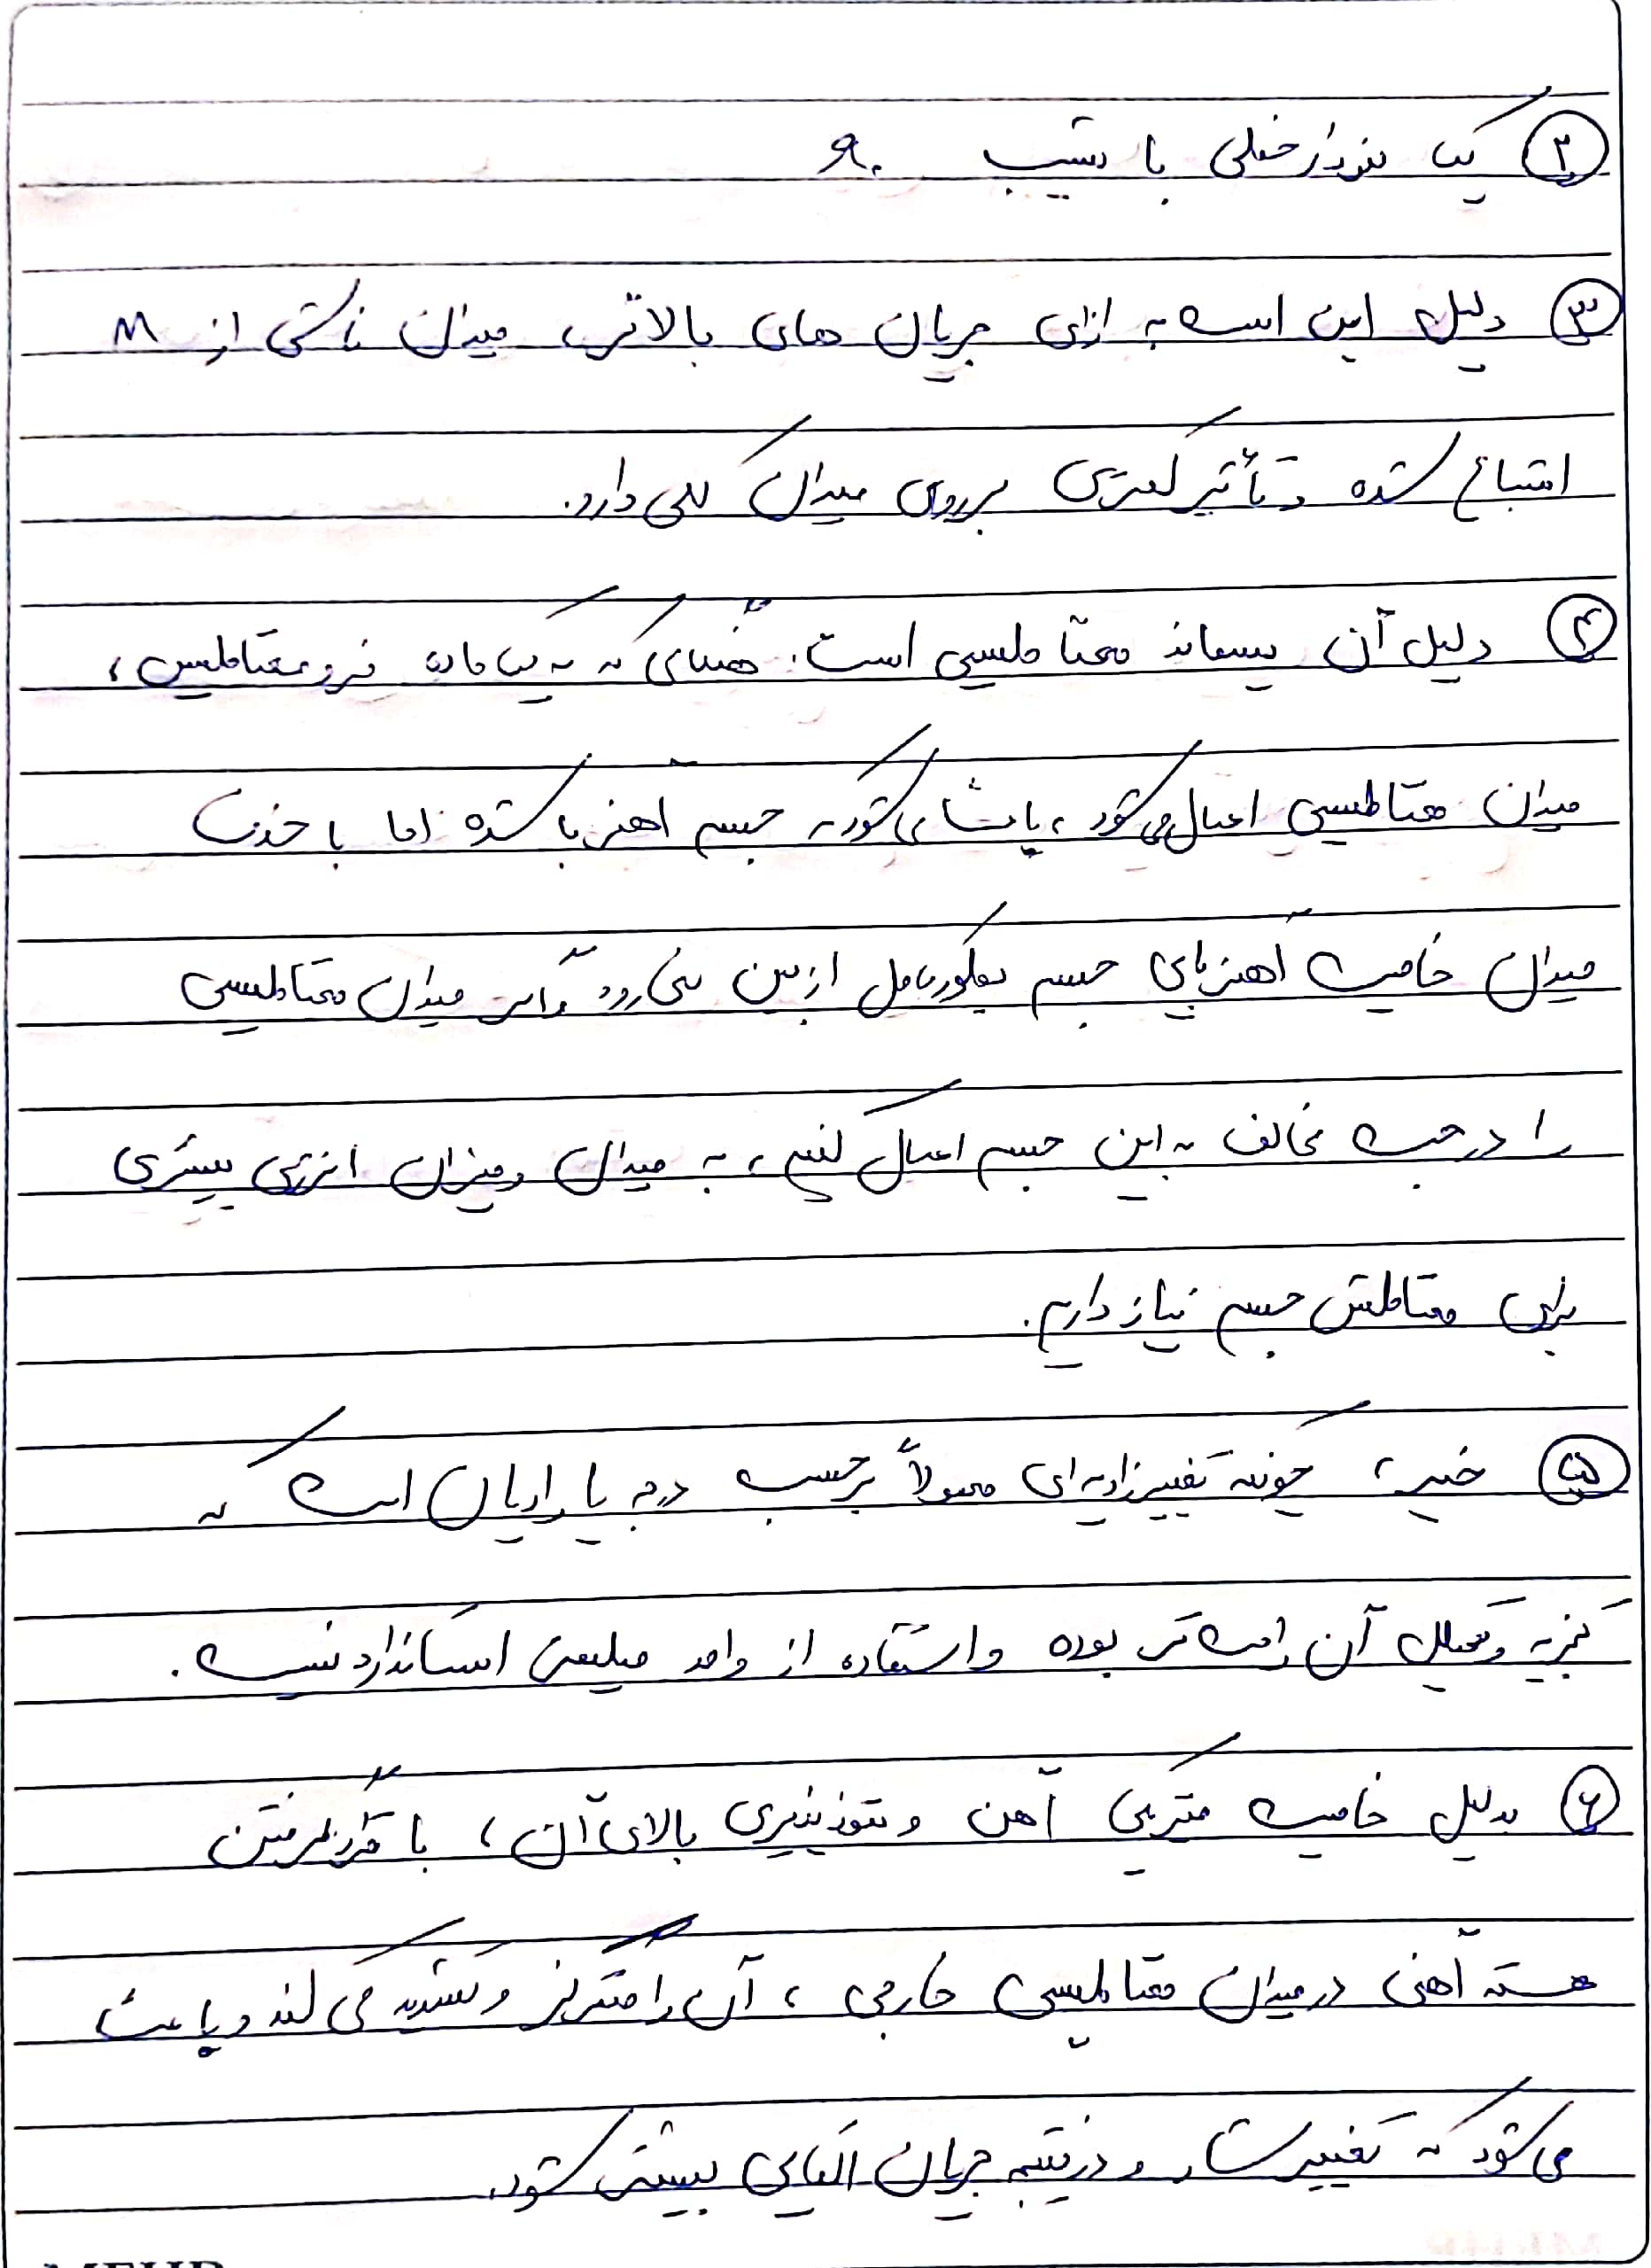 ۲ یک نمودار خطی با شیب μ۰
۳ دلیل این است به ازای جریان های بالاتر، میدان ناشی از M
اشباع شده و تأثیر کمتری بر روی میدان کلی دارد.
۴ دلیل آن پسماند مغناطیسی است. هنگامی که به یک ماده فرومغناطیس،
میدان مغناطیسی اعمال می شود، باعث می شود که جسم آهنربا شده اما با حذف
میدان خاصیت آهنربایی جسم بطور کامل از بین نمی رود و اگر میدان مغناطیسی
را در جهت مخالف به این جسم اعمال کنیم، به میدان و میزان انرژی بیشتری
برای مغناطش جسم نیاز داریم.
۵ خیر، چونکه تغییر زاویه ای معمولاً برحسب درجه یا رادیان است که
تجزیه و تحلیل آن راحت تر بوده و استفاده از واحد میلیمتر استاندارد نیست.
۶ بدلیل خاصیت آهن و نفوذپذیری بالای آن، با قرار گرفتن
هسته آهنی در میدان مغناطیسی خارجی، آن را متمرکز و تشدید می کند و باعث
می شود که تغییر شار و در نتیجه جریان القایی بیشتر شود.
MEHR